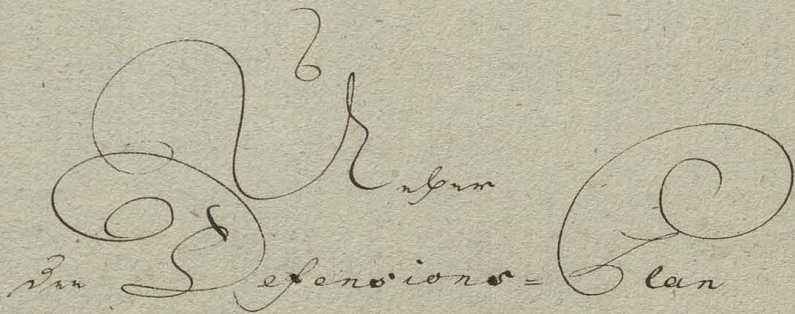 Ueber
den Defensions=Plan